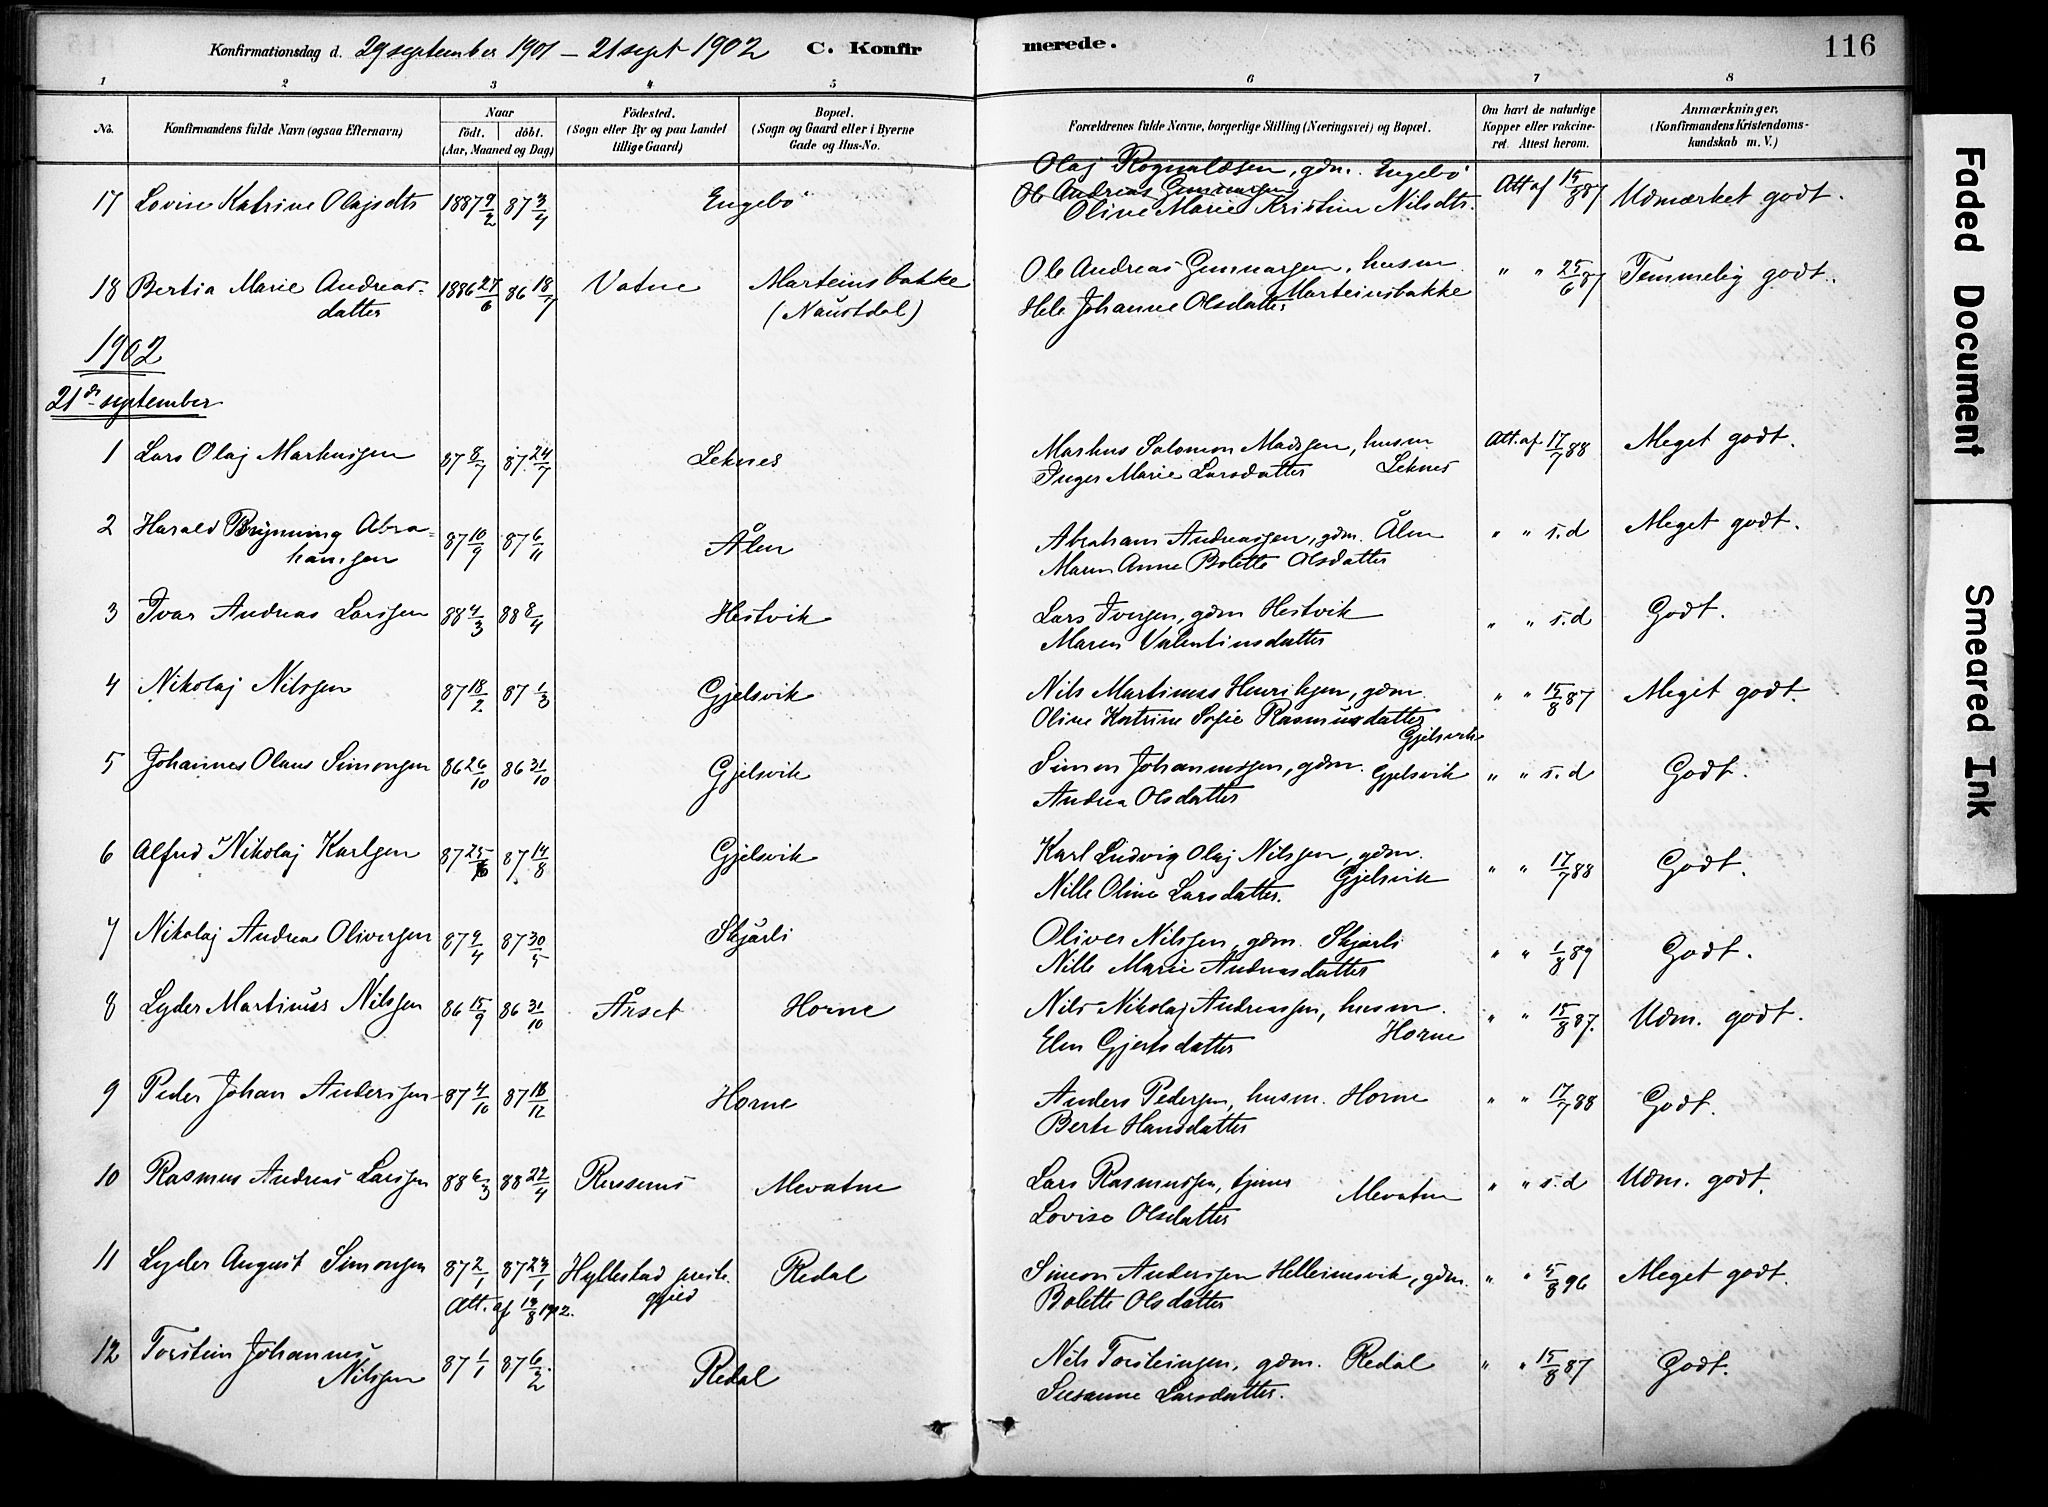 Konfirmationsdag d. 29 september 1901 – 21 sept 1902 C. Konfirmerede. 116
1 2 3 4 5 6 7 8
No. Konfirmandens fulde Navn (ogsaa Efternavn) Naar født. døbt. (Aar, Maaned og Dag) Fødested. (Sogn eller By og paa Landet tillige Gaard) Bopæl. (Sogn og Gaard eller i Byerne Gade og Hus-No. Forældrenes fulde Navne, borgerlige Stilling (Næringsvei) og Bopæl. Om havt de naturlige Kopper eller vakcineret. Attest herom. Anmærkninger. (Konfirmandens Kristendomskundskab m. V.)
17 Lovise Katrine Olajsdtr 1887 9/2 87 3/4 Engebö Olaj Rognaldsen, gdm. Engebö Att af 15/8 87 Udmærket godt.
Ole Andreas Gunnarsen
Olive Marie Kristine Nilsdtr.
18 Bertia Marie Andreas- 1886 27/6 86 18/7 Vatne Marteinsbakke Ole Andreas Gunnarsen, husm " " 25/6 87 Temmelig godt.
datter (Naustdal) Hele Johanne Olsdatter Marteinsbakke
1902
21de september
1 Lars Olaj Markussen 87 8/7 87 24/7 Leknes Markus Salomon Madssen, husm Att. af 17/7 88 Meget godt.
Inger Marie Larsdatter Leknes
2 Harald Brynning Abra- 87 10/9 87 6/11 Ålen Abraham Andreassen, gdm. Ålen " " s.d Meget godt.
hamsen Maren Anne Bolette Olsdatter
3 Ivar Andreas Larssen 88 4/3 88 8/4 Hestvik Lars Iversen, gdm Hestvik " " s.d Godt.
Maren Valentinsdatter
4 Nikolaj Nilssen 87 18/2 87 1/3 Gjelsvik Nils Martinus Henriksen, gdm. " " 15/8 87 Meget godt.
Oline Katrine Sofie Rasmusdatter
Gjelsvik
5 Johannes Olaus Simonsen 86 26/10 86 31/10 Gjelsvik Simon Johannessen, gdm. Gjelsvik " " s.d Godt.
Andrea Olsdatter
6 Alfred Nikolaj Karlsen 87 25/6 87 14/8 Gjelsvik Karl Ludvig Olaj Nilssen, gdm. " " 17/7 88 Godt.
Nille Oline Larsdatter. Gjelsvik
7 Nikolaj Andreas Oliversen 87 9/4 87 30/5 Skjarli Oliver Nilssen, gdm. Skjarli " " 1/8 89 Godt.
Nille Marie Andreasdatter
8 Lyder Martinus Nilssen 86 15/9 86 31/10 Årset Horne Nils Nikolaj Andreassen, husm. " " 15/8 87. Udm. godt.
Elen Gjertsdatter Horne
9 Peder Johan Anderssen 87 4/10 87 18/12 Horne Anders Pedersen, husm. Horne " " 17/7 88 Godt.
Berte Hansdatter
10 Rasmus Andreas Larssen 88 6/3 88 22/4 Russenes Mevatne Lars Rasmussen, tjener Mevatne " " s.d Udm. godt.
Lovise Olsdatter
11 Lyder August Simonsen 87 2/1 87 23/1 Hyllestad preste- Redal Simon Anderssen Helleimsvik, gdm. " " 5/8 96 Meget godt.
Att. af 14/8 1902. gjeld Bolette Olsdatter
12 Torstein Johannes 87 1/1 87 6/2 Redal Nils Torsteinsen, gdm. Redal " " 15/8 87 Godt.
Nilssen Susanne Larsdatter.
Faded Document
Smeared Ink